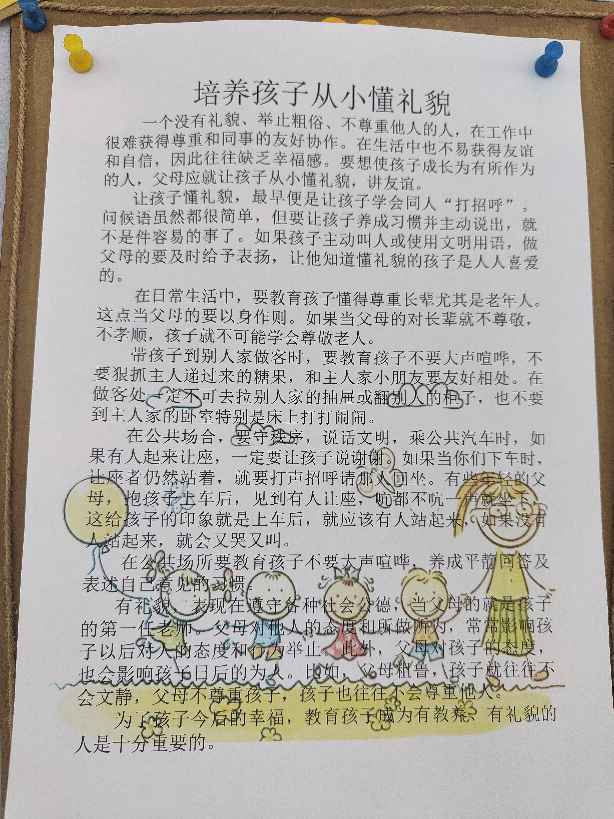 培养孩子从小懂礼貌
一个没有礼貌、举止粗俗、不尊重他人的人，在工作中
很难获得尊重和同事的友好协作。在生活中也不易获得友谊
和自信，因此往往缺乏幸福感。要想使孩子成长为有所作为
的人，父母应就让孩子从小懂礼貌，讲友谊。
让孩子懂礼貌，最早便是让孩子学会同人“打招呼”。
问候语虽然都很简单，但要让孩子养成习惯并主动说出，就
不是件容易的事了。如果孩子主动叫人或使用文明用语，做
父母的要及时给予表扬，让他知道懂礼貌的孩子是人人喜爱
的。
在日常生活中，要教育孩子懂得尊重长辈尤其是老年人。
这点当父母的要以身作则。如果当父母的对长辈就不尊敬，
不孝顺，孩子就不可能学会尊敬老人。
带孩子到别人家做客时，要教育孩子不要大声喧哗，不
要狠抓主人递过来的糖果，和主人家小朋友要友好相处。在
做客处一定不可去拉别人家的抽屉或翻别人的柜子，也不要
到主人家的卧室特别是床上打打闹闹。
在公共场合，要守秩序，说话文明，乘公共汽车时，如
果有人起来让座，一定要让孩子说谢谢。如果当你们下车时，
让座者仍然站着，就要打声招呼请那人回坐。有些年轻的父
母，抱孩子上车后，见到有人让座，吭都不吭一声就坐下，
这给孩子的印象就是上车后，就应该有人站起来，如果没有
人站起来，就会又哭又叫。
在公共场所要教育孩子不要大声喧哗，养成平静回答及
表述自己意见的习惯。
有礼貌，表现在遵守各种社会公德，当父母的就是孩子
的第一任老师。父母对他人的态度和所做所为，常常影响孩
子以后对人的态度和行为举止。此外，父母对孩子的态度，
也会影响孩子日后的为人。比如，父母粗鲁，孩子就往往不
会文静，父母不尊重孩子，孩子也往往不会尊重他人。
为了孩子今后的幸福，教育孩子成为有教养、有礼貌的
人是十分重要的。